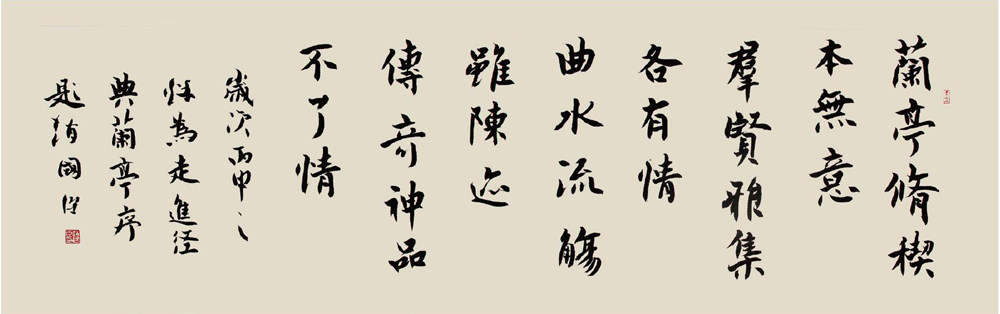 蘭亭脩稧
本無意
羣賢雅集
各有情
曲水流觴
雖陳迹
傳奇神品
不了情
歲次丙申之
秋為走進経
典蘭亭序
題 國